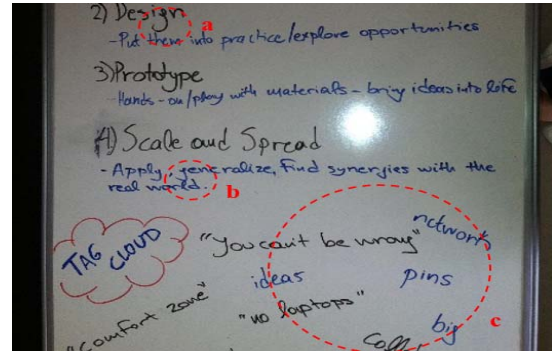 2) Design
-Put them into practice/explore opportunities
a
3) Prototype
-Hands-on/play with materials - bring ideas into life
4) Scale and Spread
- Apply, generalize, find synergies with the
real world.
b
TAG CLOUD
"you can't be wrong"
network
ideas
pins
"comfort zone"
"no laptops"
big
c